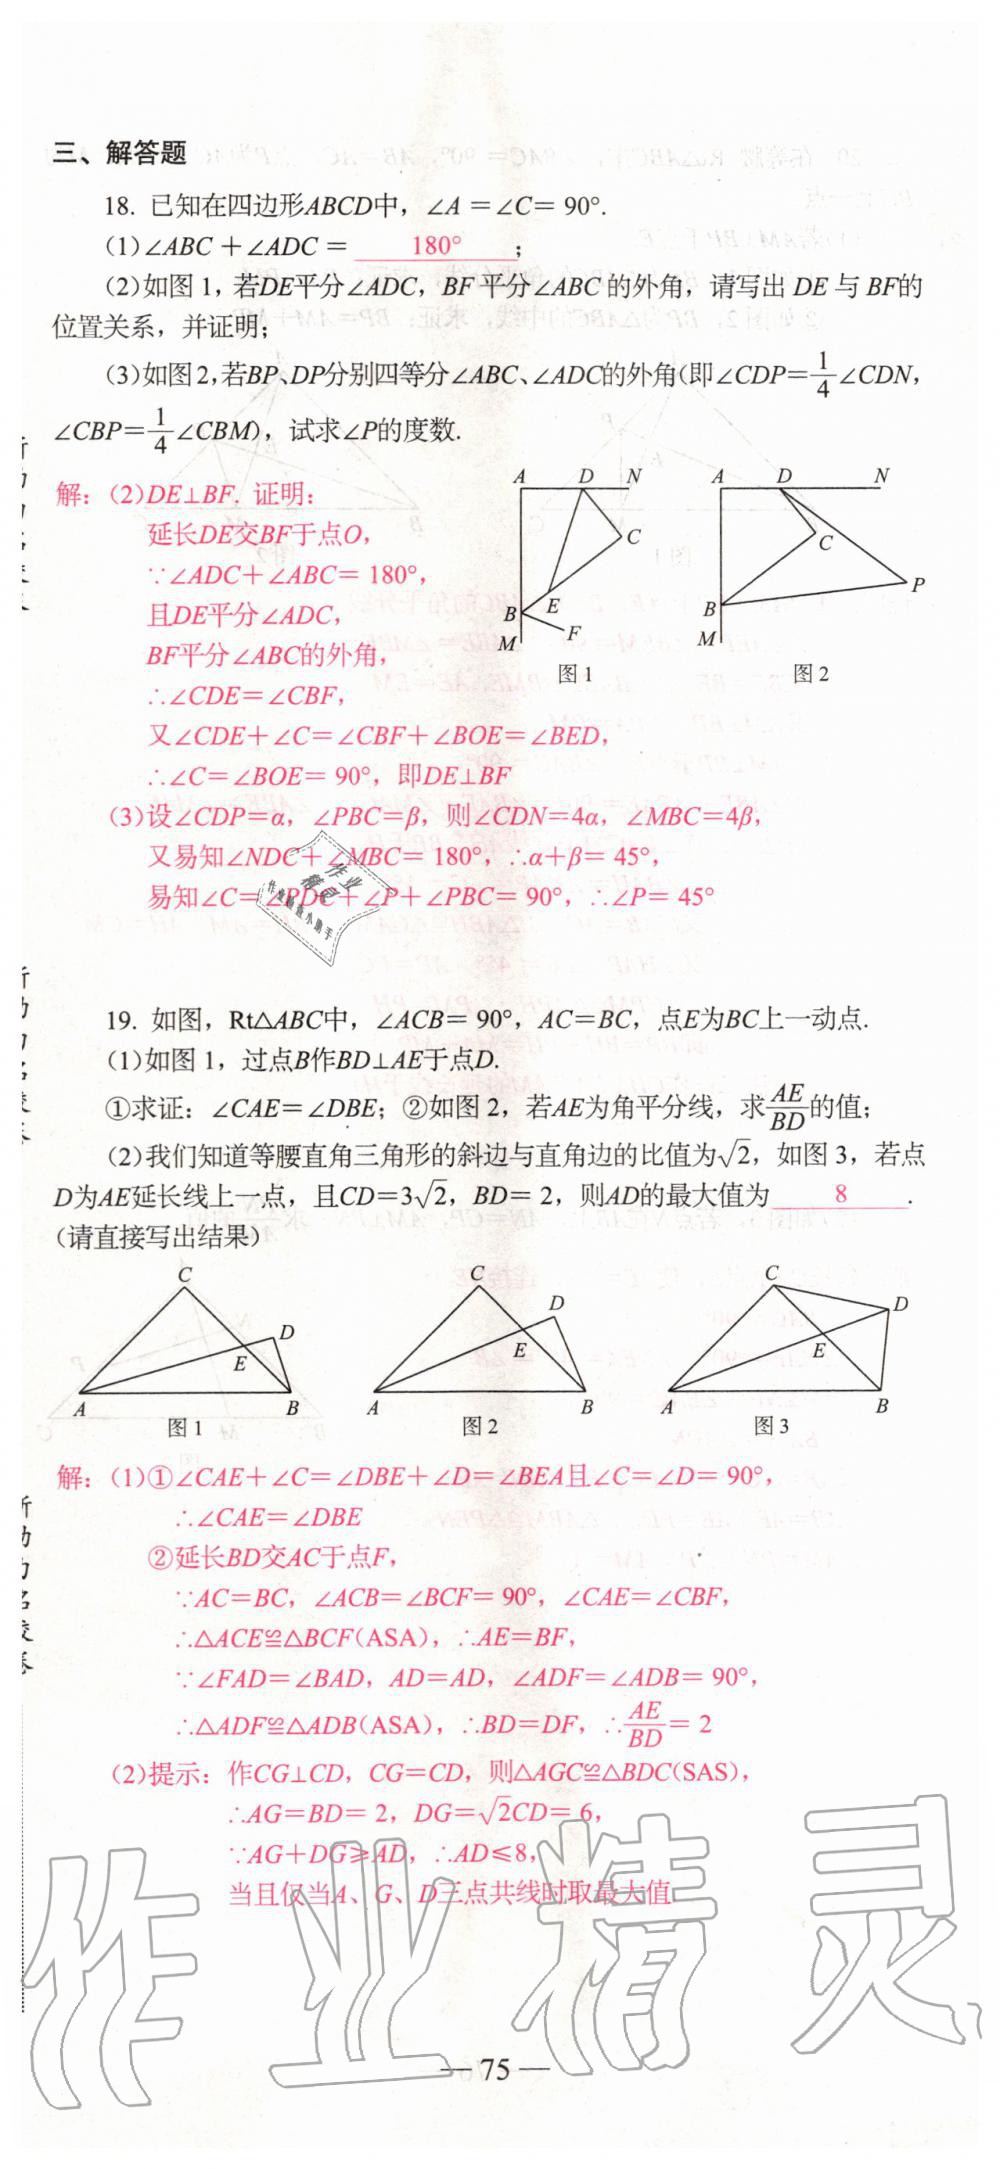 三、解答题
18. 已知在四边形ABCD中，∠A＝∠C＝90°.
(1)∠ABC＋∠ADC＝180°；
(2)如图1，若DE平分∠ADC，BF平分∠ABC的外角，请写出DE与BF的
位置关系，并证明；
(3)如图2，若BP、DP分别四等分∠ABC、∠ADC的外角(即∠CDP＝1/4∠CDN，
∠CBP＝1/4∠CBM)，试求∠P的度数.
解：(2)DE⊥BF. 证明：
延长DE交BF于点O，
∵∠ADC＋∠ABC＝180°，
且DE平分∠ADC，
BF平分∠ABC的外角，
∴∠CDE＝∠CBF，
又∠CDE＋∠C＝∠CBF＋∠BOE＝∠BED，
∴∠C＝∠BOE＝90°，即DE⊥BF
A D N
C
B E
F
M
图1
A D N
C
P
B
M
图2
(3)设∠CDP＝α，∠PBC＝β，则∠CDN＝4α，∠MBC＝4β，
又易知∠NDC＋∠MBC＝180°，∴α＋β＝45°，
易知∠C＝∠PDC＋∠P＋∠PBC＝90°，∴∠P＝45°
作业
精灵
19. 如图，Rt△ABC中，∠ACB＝90°，AC＝BC，点E为BC上一动点.
(1)如图1，过点B作BD⊥AE于点D.
①求证：∠CAE＝∠DBE；②如图2，若AE为角平分线，求AE/BD的值；
(2)我们知道等腰直角三角形的斜边与直角边的比值为√2，如图3，若点
D为AE延长线上一点，且CD＝3√2，BD＝2，则AD的最大值为8.
(请直接写出结果)
C
D
E
A B
图1
C
D
E
A B
图2
C
D
E
A B
图3
解：(1)①∠CAE＋∠C＝∠DBE＋∠D＝∠BEA且∠C＝∠D＝90°，
∴∠CAE＝∠DBE
②延长BD交AC于点F，
∵AC＝BC，∠ACB＝∠BCF＝90°，∠CAE＝∠CBF，
∴△ACE≌△BCF(ASA)，∴AE＝BF，
∵∠FAD＝∠BAD，AD＝AD，∠ADF＝∠ADB＝90°，
∴△ADF≌△ADB(ASA)，∴BD＝DF，∴AE/BD＝2
(2)提示：作CG⊥CD，CG＝CD，则△AGC≌△BDC(SAS)，
∴AG＝BD＝2，DG＝√2CD＝6，
∵AG＋DG≥AD，∴AD≤8，
当且仅当A、G、D三点共线时取最大值.
作业精灵
— 75 —